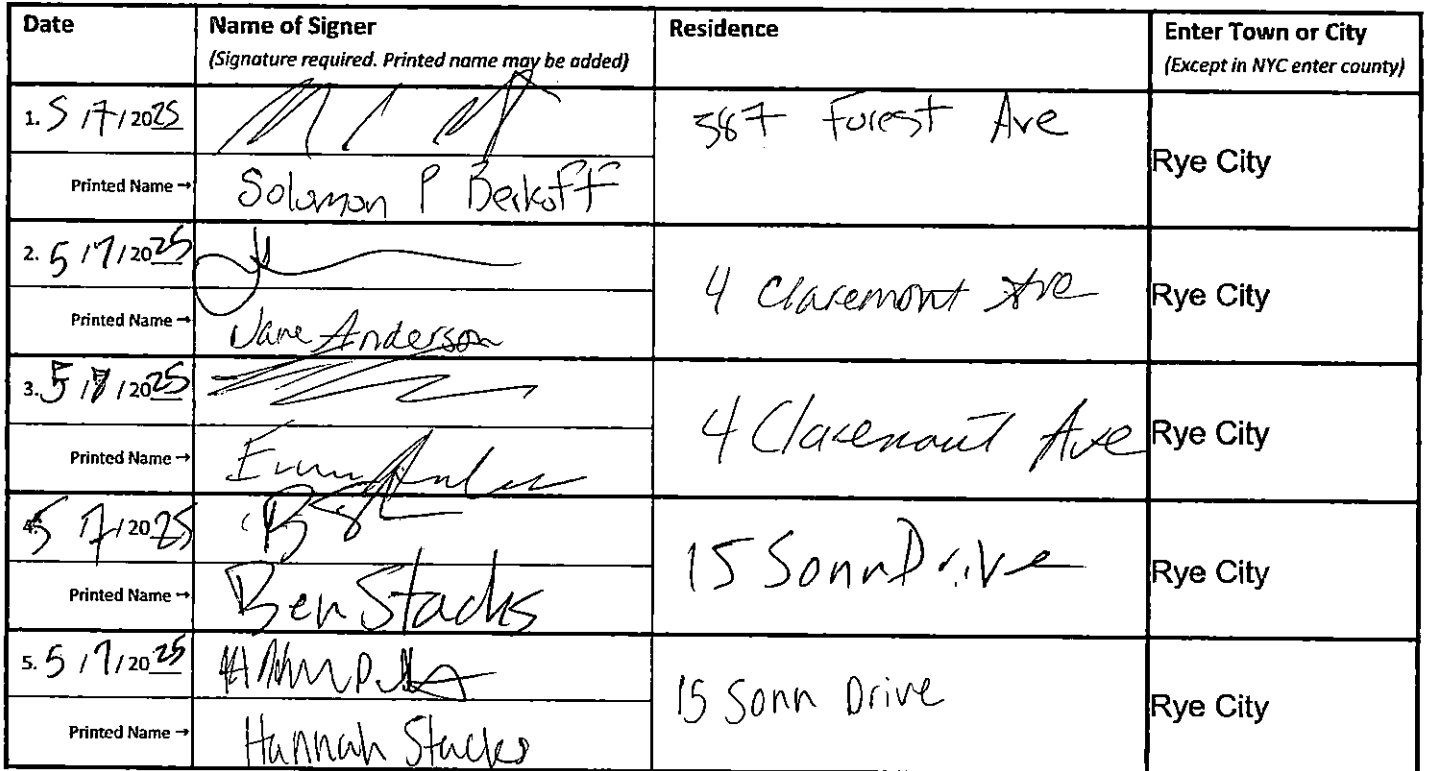 Date Name of Signer Residence Enter Town or City
(Signature required. Printed name may be added) (Except in NYC enter county)
1. 5 / 7 / 2025 587 Forest Ave Rye City
Printed Name → Solomon P Berkoff
2. 5 / 7 / 2025 4 Claremont Ave Rye City
Printed Name → Jane Anderson
3. 5 / / 2025 4 Claremont Ave Rye City
Printed Name →
4. 5 / 7 / 2025 15 Sonn Drive Rye City
Printed Name → Ben Stacks
5. 5 / 7 / 2025 15 Sonn Drive Rye City
Printed Name → Hannah Stacks